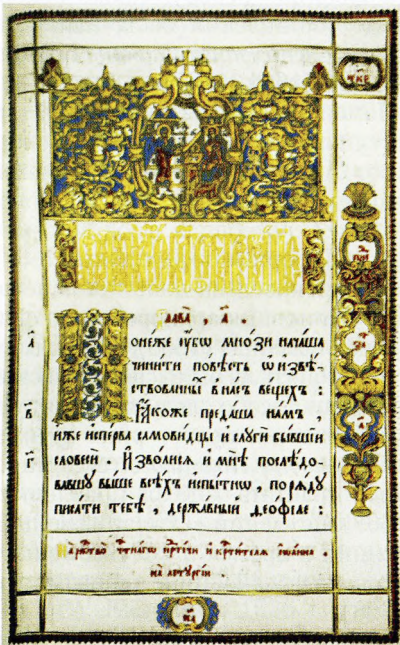 рк҃е
Глава̀ , а҃ .
а҃
Понеже ᲂу҆́бѡ мно́зи нача́ша
чини́ти по́вѣсть ѡ҆ и҆звѣ́-
ствованныⷯ в на́съ ве́щехъ :
в҃
Ꙗ҆́коже преда́ша на́мъ ,
и҆̀же и҆спе́рва самови́дцы и҆ слꙋги̑ бы́вшїи
г҃
словесѝ . И҆зво́лисѧ и҆ мнѣ̀ послѣ́до-
вавшꙋ вы́ше всѣ̑хъ и҆спы́тнѡ , по рѧ́дꙋ
писа́ти тебѣ̀ , держа́вный ѳео́филе :
На ржⷭ҇тво̀ чтⷭ҇на́гѡ прⷣте́чи и҆ крⷭ҇ти́телѧ і҆ѡа́нна .
на лїтꙋргі́и .